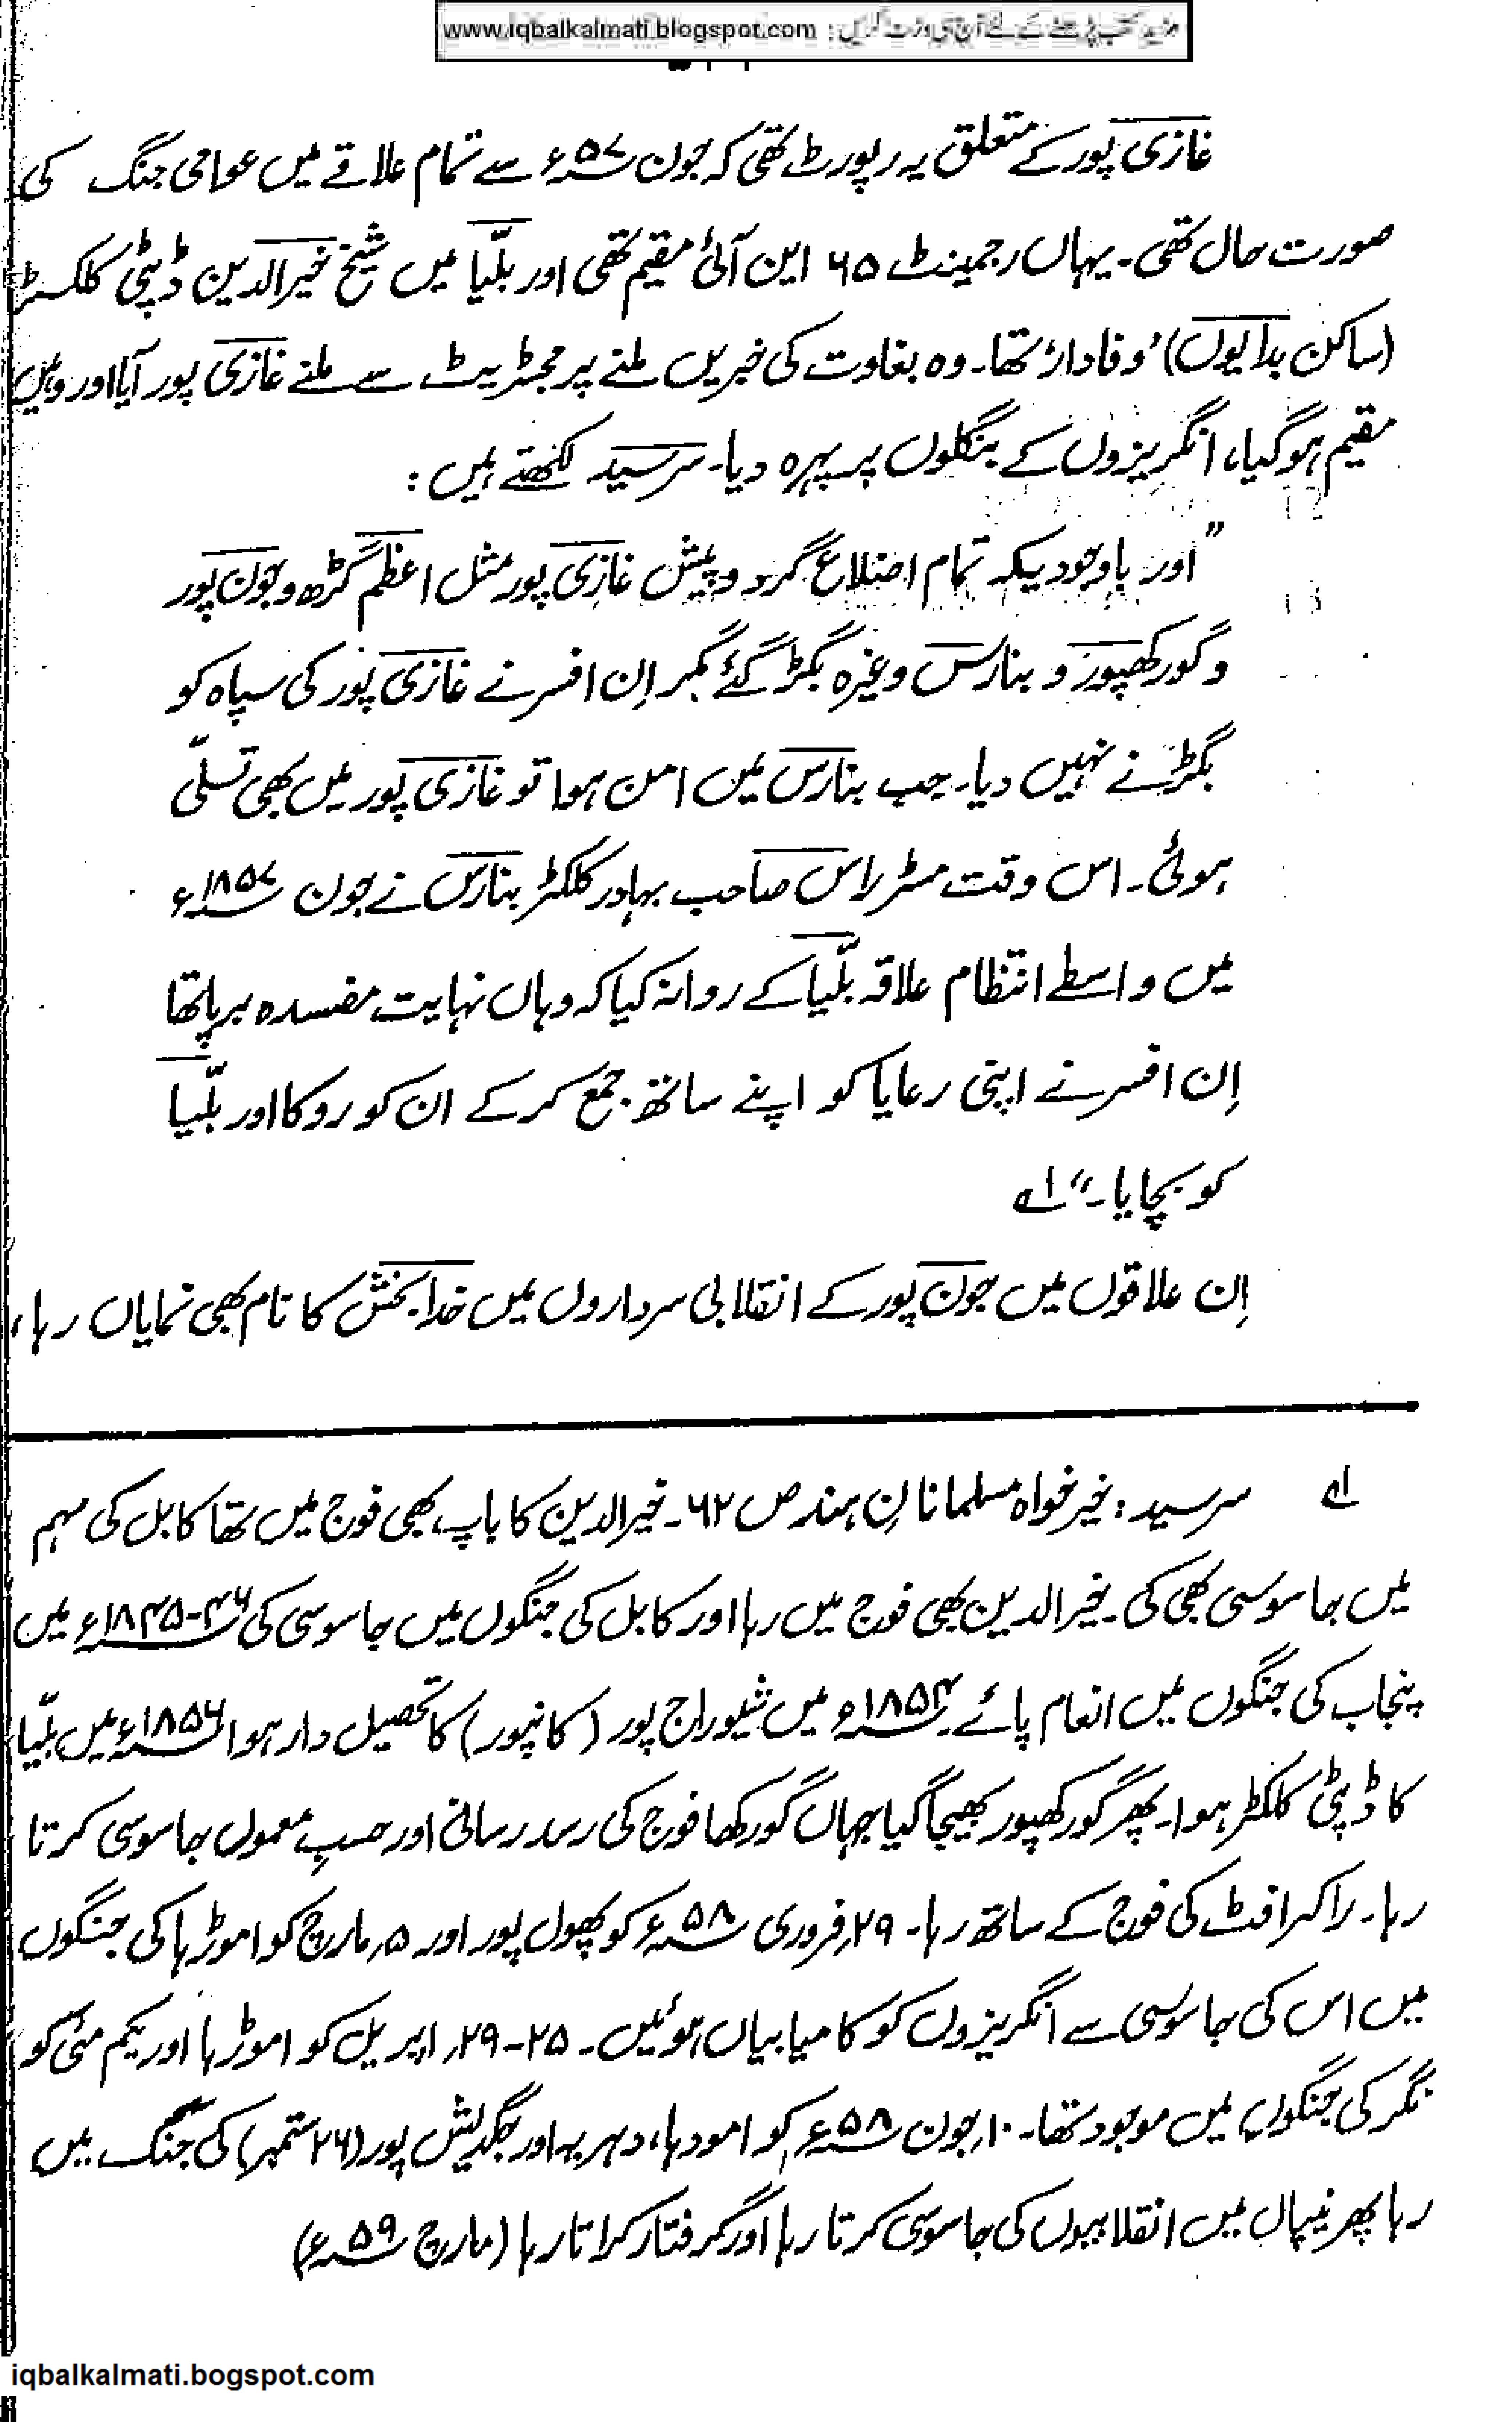 www.iqbalkalmati.blogspot.com : مزید کتب پڑھنے کے لئے آج ہی وزٹ کریں
غازی پور کے متعلق یہ رپورٹ تھی کہ جون ۵۷ء سے تمام علاقے میں عوامی جنگ کی
صورت حال تھی۔ یہاں رجمینٹ ۶۵ این آئی مقیم تھی اور بلّیا میں شیخ خیرالدین ڈپٹی کلکٹر
(ساکن بدایوں) 'وفادار' تھا۔ وہ بغاوت کی خبریں ملنے پر مجسٹریٹ سے ملنے غازی پور آیا اور وہیں
مقیم ہوگیا، انگریزوں کے بنگلوں پر پہرہ دیا۔ سرسید لکھتے ہیں :
"اور باوجودیکہ تمام اضلاع گرد و پیش غازی پور مثل اعظم گڑھ و جون پور
و گورکھپور و بنارس وغیرہ بگڑ گئے مگر اِن افسر نے غازی پور کی سپاہ کو
بگڑنے نہیں دیا۔ جب بنارس میں امن ہوا تو غازی پور میں بھی تسلّی
ہوئی۔ اس وقت مسٹر راس صاحب بہادر کلکٹر بنارس نے جون ۱۸۵۷ء
میں واسطے انتظام علاقہ بلّیا کے روانہ کیا کہ وہاں نہایت مفسدہ برپا تھا
اِن افسر نے اپنی رعایا کو اپنے ساتھ جمع کرکے ان کو روکا اور بلّیا
کو بچایا۔" ۱؎
اِن علاقوں میں جون پور کے انقلابی سرداروں میں خدابخش کا نام بھی نمایاں رہا،
۱؎ سرسید : خیرخواہ مسلمانانِ ہند ص ۶۲۔ خیرالدین کا باپ بھی فوج میں تھا کابل کی مہم
میں جاسوسی بھی کی۔ خیرالدین بھی فوج میں رہا اور کابل کی جنگوں میں جاسوسی کی ۴۶-۱۸۴۵ء میں
پنجاب کی جنگوں میں انعام پائے۔ ۱۸۵۴ء میں شیوراج پور (کانپور) کا تحصیل دار ہوا ۱۸۵۶ء میں بلّیا
کا ڈپٹی کلکٹر ہوا۔ پھر گورکھپور بھیجا گیا جہاں گورکھا فوج کی رسد رسانی اور حسبِ معمول جاسوسی کرتا
رہا۔ راکرافٹ کی فوج کے ساتھ رہا۔ ۲۹؍ فروری ۵۸ء کو پھول پور اور ۵؍ مارچ کو اموڑہا کی جنگوں
میں اس کی جاسوسی سے انگریزوں کو کامیابیاں ہوئیں۔ ۲۵-۲۹؍ اپریل کو اموڑہا اور یکم مئی کو
نگر کی جنگوں میں موجود تھا۔ ۱۰؍ جون ۵۸ء کو امودہا، دہریہ اور جگدیش پور (۲۶ ستمبر) کی جنگ میں
رہا پھر نیپال میں انقلابیوں کی جاسوسی کرتا رہا اور گرفتار کراتا رہا (مارچ ۵۹ء)
iqbalkalmati.bogspot.com